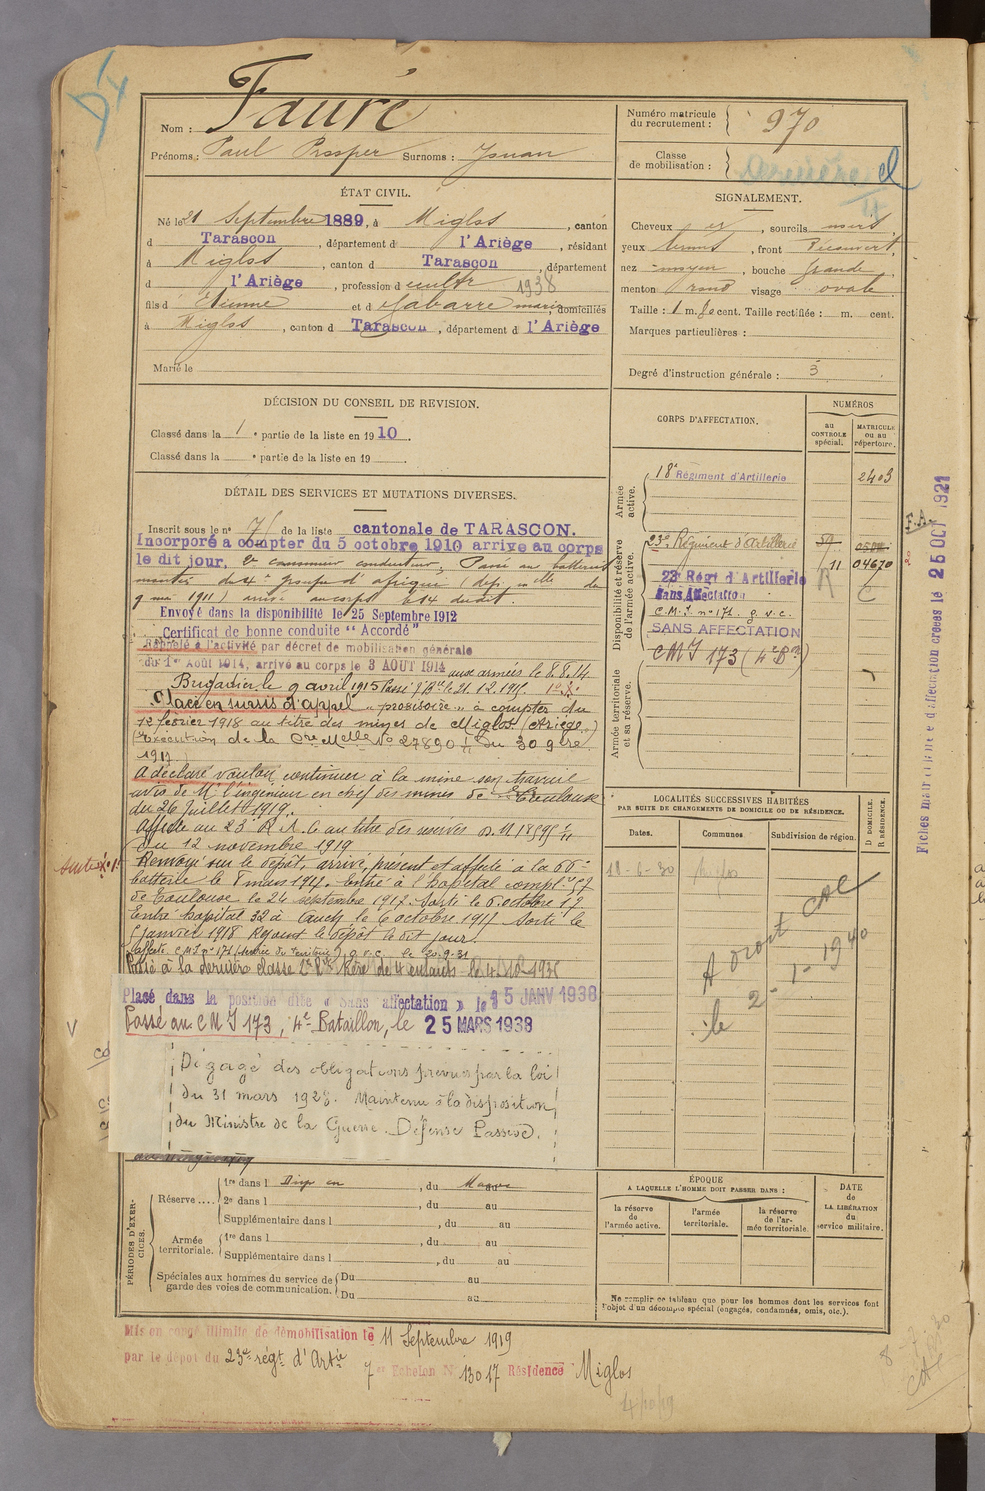 Nom : Fauré
Prénoms : Paul Prosper Surnoms : Jsnan
Numéro matricule du recrutement : 970
Classe de mobilisation :
ÉTAT CIVIL.
Né le 21 Septembre 1889, à Miglos, canton
d Tarascon, département d l'Ariège, résidant
à Miglos, canton d Tarascon, département
d l'Ariège, profession d cultr
1938
fils d Etienne et d Jabarre marie, domiciliés
à Miglos, canton d Tarascon, département d l'Ariège
Marié le
SIGNALEMENT.
Cheveux et, sourcils noirs,
yeux bruns, front Découvert,
nez moyen, bouche grande,
menton rond visage ovale.
Taille : 1 m. 80 cent. Taille rectifiée : m. cent.
Marques particulières :
Degré d'instruction générale : 3
DÉCISION DU CONSEIL DE REVISION.
Classé dans la 1e partie de la liste en 1910.
Classé dans la e partie de la liste en 19
DÉTAIL DES SERVICES ET MUTATIONS DIVERSES.
Inscrit sous le no 75 de la liste cantonale de TARASCON.
Incorporé a compter du 5 octobre 1910 arrive au corps
le dit jour, 2e canonnier conducteur. Passé aux batteries
montées du 4e groupe d'afrique (dép. mlle du
9 mai 1911) arrivé au corps le 14 dudit
Envoyé dans la disponibilité le 25 Septembre 1912
Certificat de bonne conduite "Accordé"
Rappelé à l'activité par décret de mobilisation générale
du 1er Août 1914, arrivé au corps le 3 AOUT 1914 aux armées le 8.8.14.
Brigadier le 9 avril 1915 Passé
Placé en sursis d'appel "provisoire" à compter du
12 février 1918 au titre des mines de Miglos (Ariège)
(Exécution de la Cre Melle No 27890 du 30 9bre
1917
A déclaré vouloir continuer à la mine son travail
avis de Mr l'ingénieur en chef des mines de Toulouse
du 26 Juillet 1919.
Affecté au 23e R.A.C au titre des réserves
du 12 novembre 1919
Renvoyé sur le dépôt, arrivé, présent et affecté à la 66e
batterie le 8 mars 1917. Entré à l'hôpital compl.
de Toulouse le 24 septembre 1917. Sorti le 6 octobre 17
Entré hôpital 32 à Auch le 6 octobre 1917 Sorti le
5 janvier 1918 Rejoint le dépôt le dit jour.
Affecté C.M.I no 171 (service du territoire) g.v.c. le 20.9.31
Passé à la dernière classe 2e Rve Père de 4 enfants le
Placé dans la position dite « Sans affectation » le 15 JANV 1938
Passé au C M I 173, 4e Bataillon, le 25 MARS 1938
Dégagé des obligations prévues par la loi
du 31 mars 1928. Maintenu à la disposition
du Ministre de la Guerre. Défense Passive.
CORPS D'AFFECTATION.
NUMÉROS
au CONTROLE spécial.
MATRICULE ou au répertoire.
Armée active.
18e Régiment d'Artillerie 2403
Disponibilité et réserve de l'armée active.
23e Régiment d'Artillerie 59
11 04670
23e Régt d'Artillerie
Sans Affectation
C.M.I. no 171. g.v.c.
SANS AFFECTATION
CMI 173 (4e Bon)
Armée territoriale et sa réserve.
LOCALITÉS SUCCESSIVES HABITÉES
PAR SUITE DE CHANGEMENTS DE DOMICILE OU DE RÉSIDENCE.
Dates. Communes Subdivision de région. D. DOMICILE. R. RÉSIDENCE.
18-6-30 Miglos
A droit CAC
le 2-1-1940
F.A.
Fiches matricule et d'affectation creees le 25 OCT 1921
PÉRIODES D'EXERCICES.
Réserve.... 1re dans l Disp en, du Maroc au
2e dans l, du au
Supplémentaire dans l, du au
Armée territoriale. 1re dans l, du au
Supplémentaire dans l, du au
Spéciales aux hommes du service de garde des voies de communication. Du au
Du au
ÉPOQUE
A LAQUELLE L'HOMME DOIT PASSER DANS :
la réserve de l'armée active.
l'armée territoriale.
la réserve de l'armée territoriale.
DATE de LA LIBÉRATION du service militaire.
Ne remplir ce tableau que pour les hommes dont les services font
l'objet d'un décompte spécial (engagés, condamnés, omis, etc.).
Mis en congé illimité de démobilisation le 11 Septembre 1919
par le dépôt du 23e régt d'Artie
7e Echelon N 13017 Résidence Miglos
4/10/19